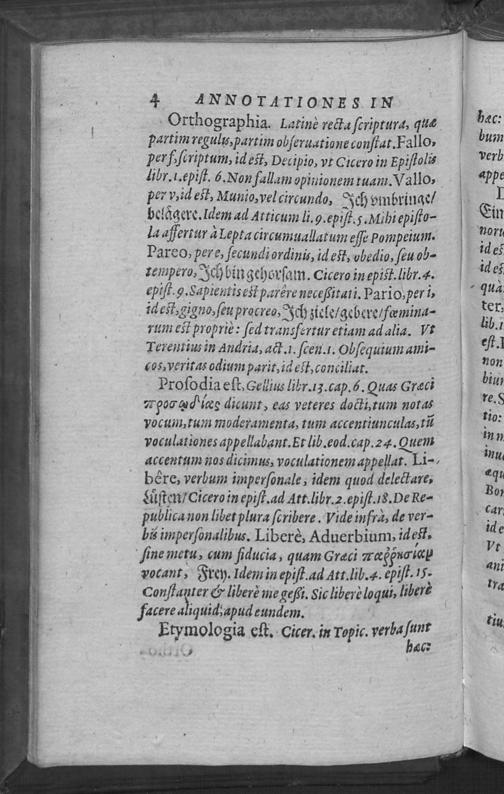 4 ANNOTATIONES IN
Orthographia. Latinè recta scriptura, quæ
partim regulis, partim obseruatione constat. Fallo,
per f, scriptum, id est, Decipio, vt Cicero in Epistolis
libr. 1. epist. 6. Non fallam opinionem tuam. Vallo,
per v, id est, Munio, vel circundo, Jch vmbringe/
belägere. Idem ad Atticum li. 9. epist. 5. Mihi episto-
la affertur à Lepta circumuallatum esse Pompeium.
Pareo, per e, secundi ordinis, id est, obedio, seu ob-
tempero, Jch bin gehorsam. Cicero in epist. libr. 4.
epist. 9. Sapientis est parêre necessitati. Pario, per i,
id est, gigno, seu procreo, Jch ziele/gebere/fœmina-
rum est propriè: sed transfertur etiam ad alia. Vt
Terentius in Andria, act. 1. scen. 1. Obsequium ami-
cos, veritas odium parit, id est, conciliat.
Prosodia est. Gellius libr. 13. cap. 6. Quas Græci
προσῳδίας dicunt, eas veteres docti, tum notas
vocum, tum moderamenta, tum accentiunculas, tũ
voculationes appellabant. Et lib. eod. cap. 24. Quem
accentum nos dicimus, voculationem appellat. Li-
bêre, verbum impersonale, idem quod delectare,
Lüsten/ Cicero in epist. ad Att. libr. 2. epist. 18. De Re-
publica non libet plura scribere. Vide infrà, de ver-
bis impersonalibus. Liberè, Aduerbium, id est,
sine metu, cum fiducia, quam Græci παῤῥησίαν
vocant, Frey. Idem in epist. ad Att. lib. 4. epist. 15.
Constanter & liberè me gessi. Sic liberè loqui, liberè
facere aliquid, apud eundem.
Etymologia est. Cicer. in Topic. verba sunt
hæc:
hæc:
bum
verb
appe
nor
id es
id es
quà
ter,
lib. 1
est.
non
biun
re. S
tio:
in n
inu
æqu
Bon
car
id e
Vt
ani
tra
tiu